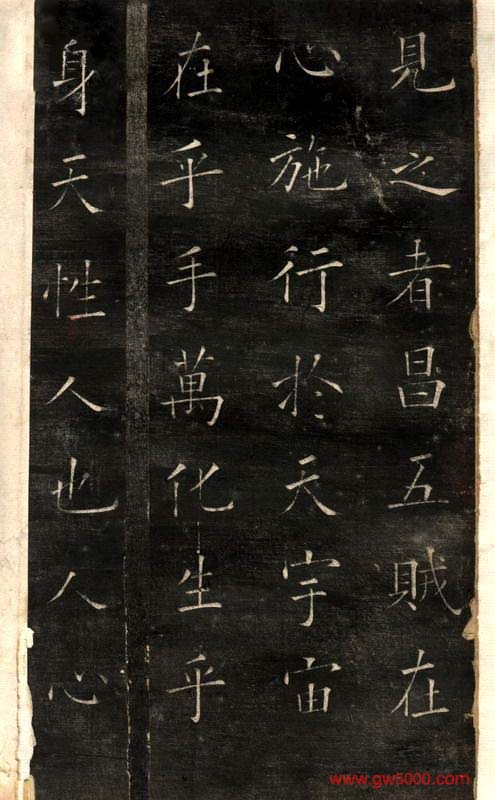 見之者昌五賊在
心施行於天宇宙
在乎手萬化生乎
身天性人也人心
www.gw5000.com